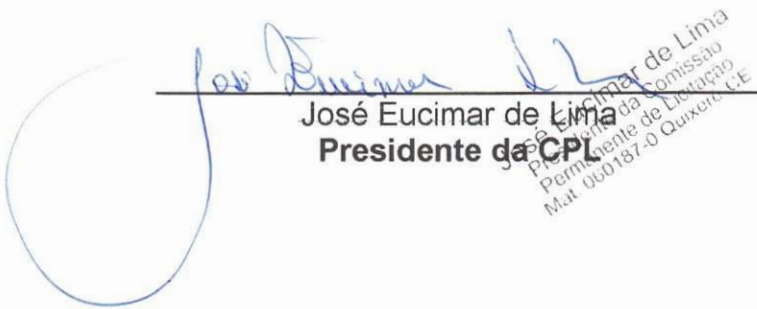 José Eucimar de Lima
José Eucimar de Lima
Presidente da CPL
José Eucimar de Lima
Presidente da Comissão
Permanente de Licitação
Mat. 060187-0 Quixeré CE